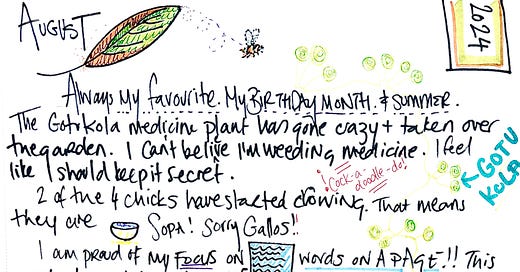 AUGUST
2024
Always my favourite. My BIRTHDAY MONTH. & SUMMER.
The Gotukola medicine plant has gone crazy + taken over
the garden. I can't belive I'm weeding medicine. I feel
like I should keep it secret.
¡Cock-a-doodle-do!
GOTU KOLA
2 of the 4 chicks have started crowing. That means
they are SOPA! Sorry Gallos!!
I am proud of my FOCUS on words on A PAGE.!! This